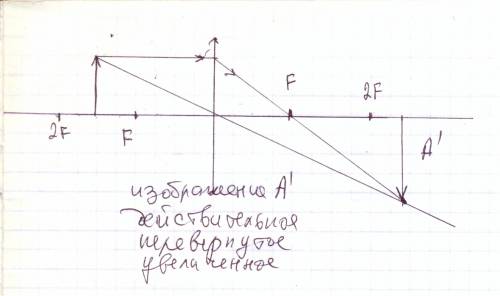 2F F F 2F
A'
изображение A'
действительное
перевернутое
увеличенное